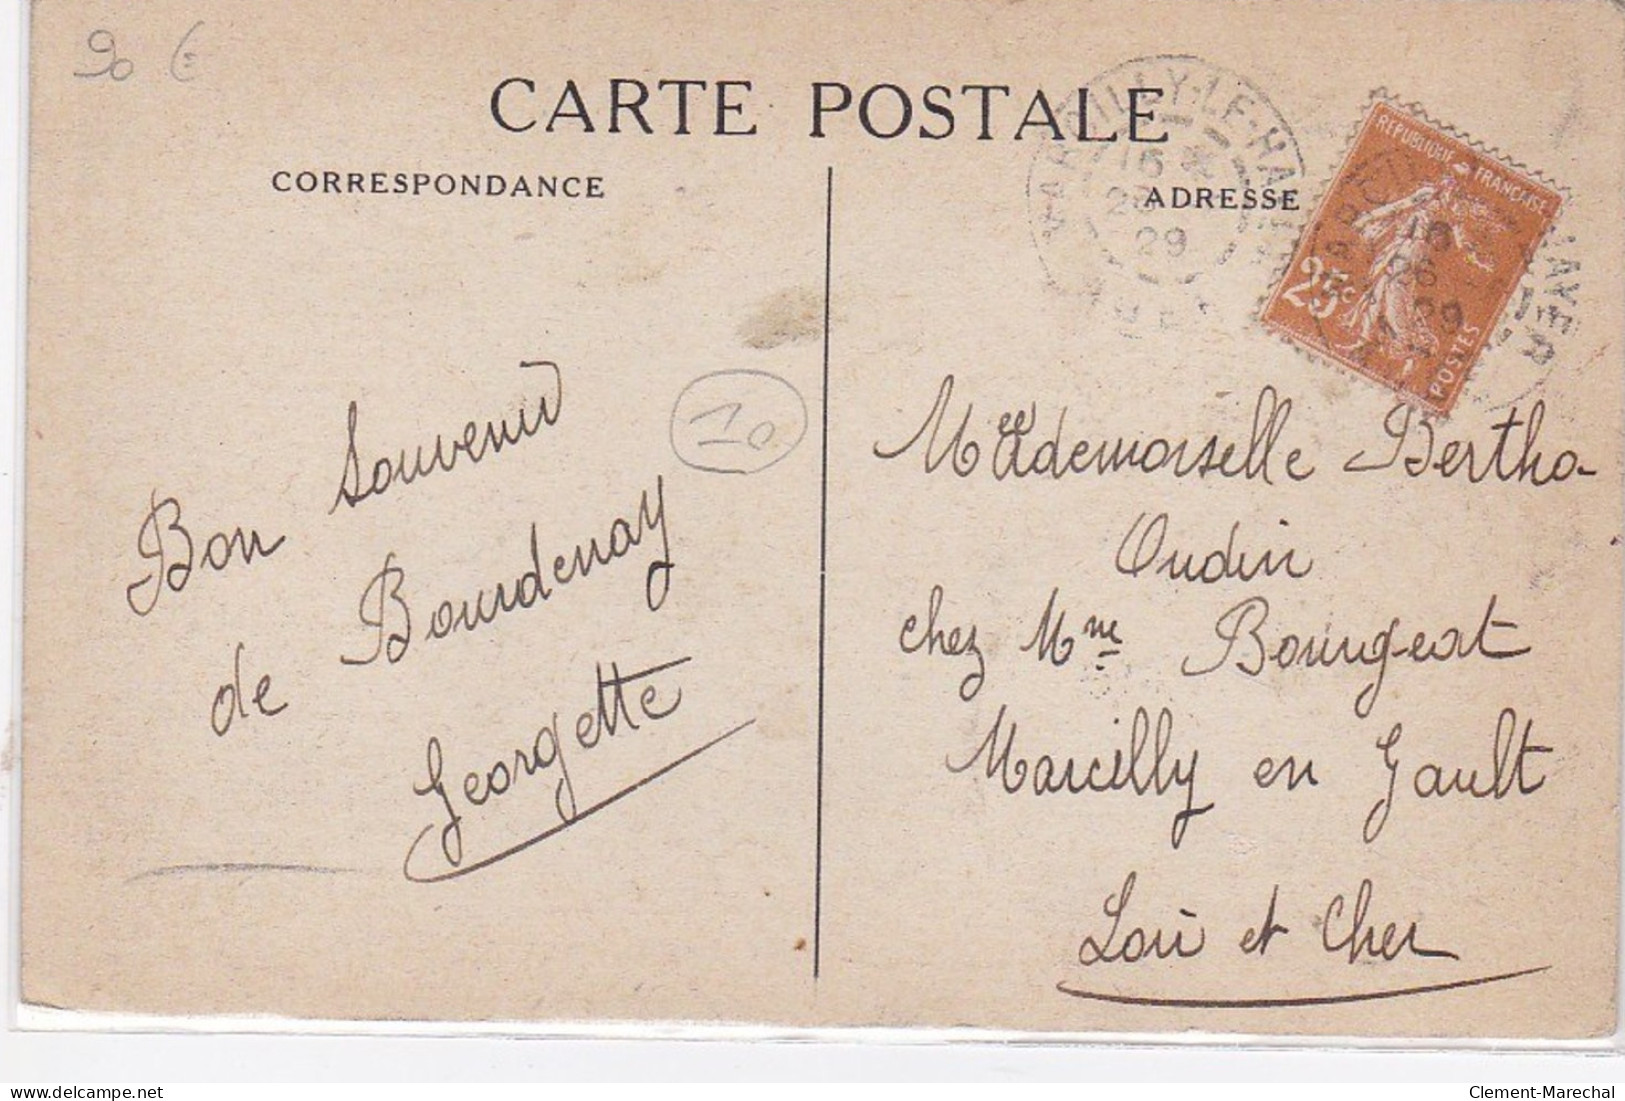 90 €
CARTE POSTALE
CORRESPONDANCE
ADRESSE
MARCILLY-LE-HAYER
16
26
29
AUBE
REPUBLIQUE FRANCAISE
25c
POSTES
10
Bon Souvenir
de Bourdenay
Georgette
Mademoiselle Bertha
Oudin
chez Mme Bourgeat
Marcilly en Gault
Loir et Cher
delcampe.net
Clement-Marechal